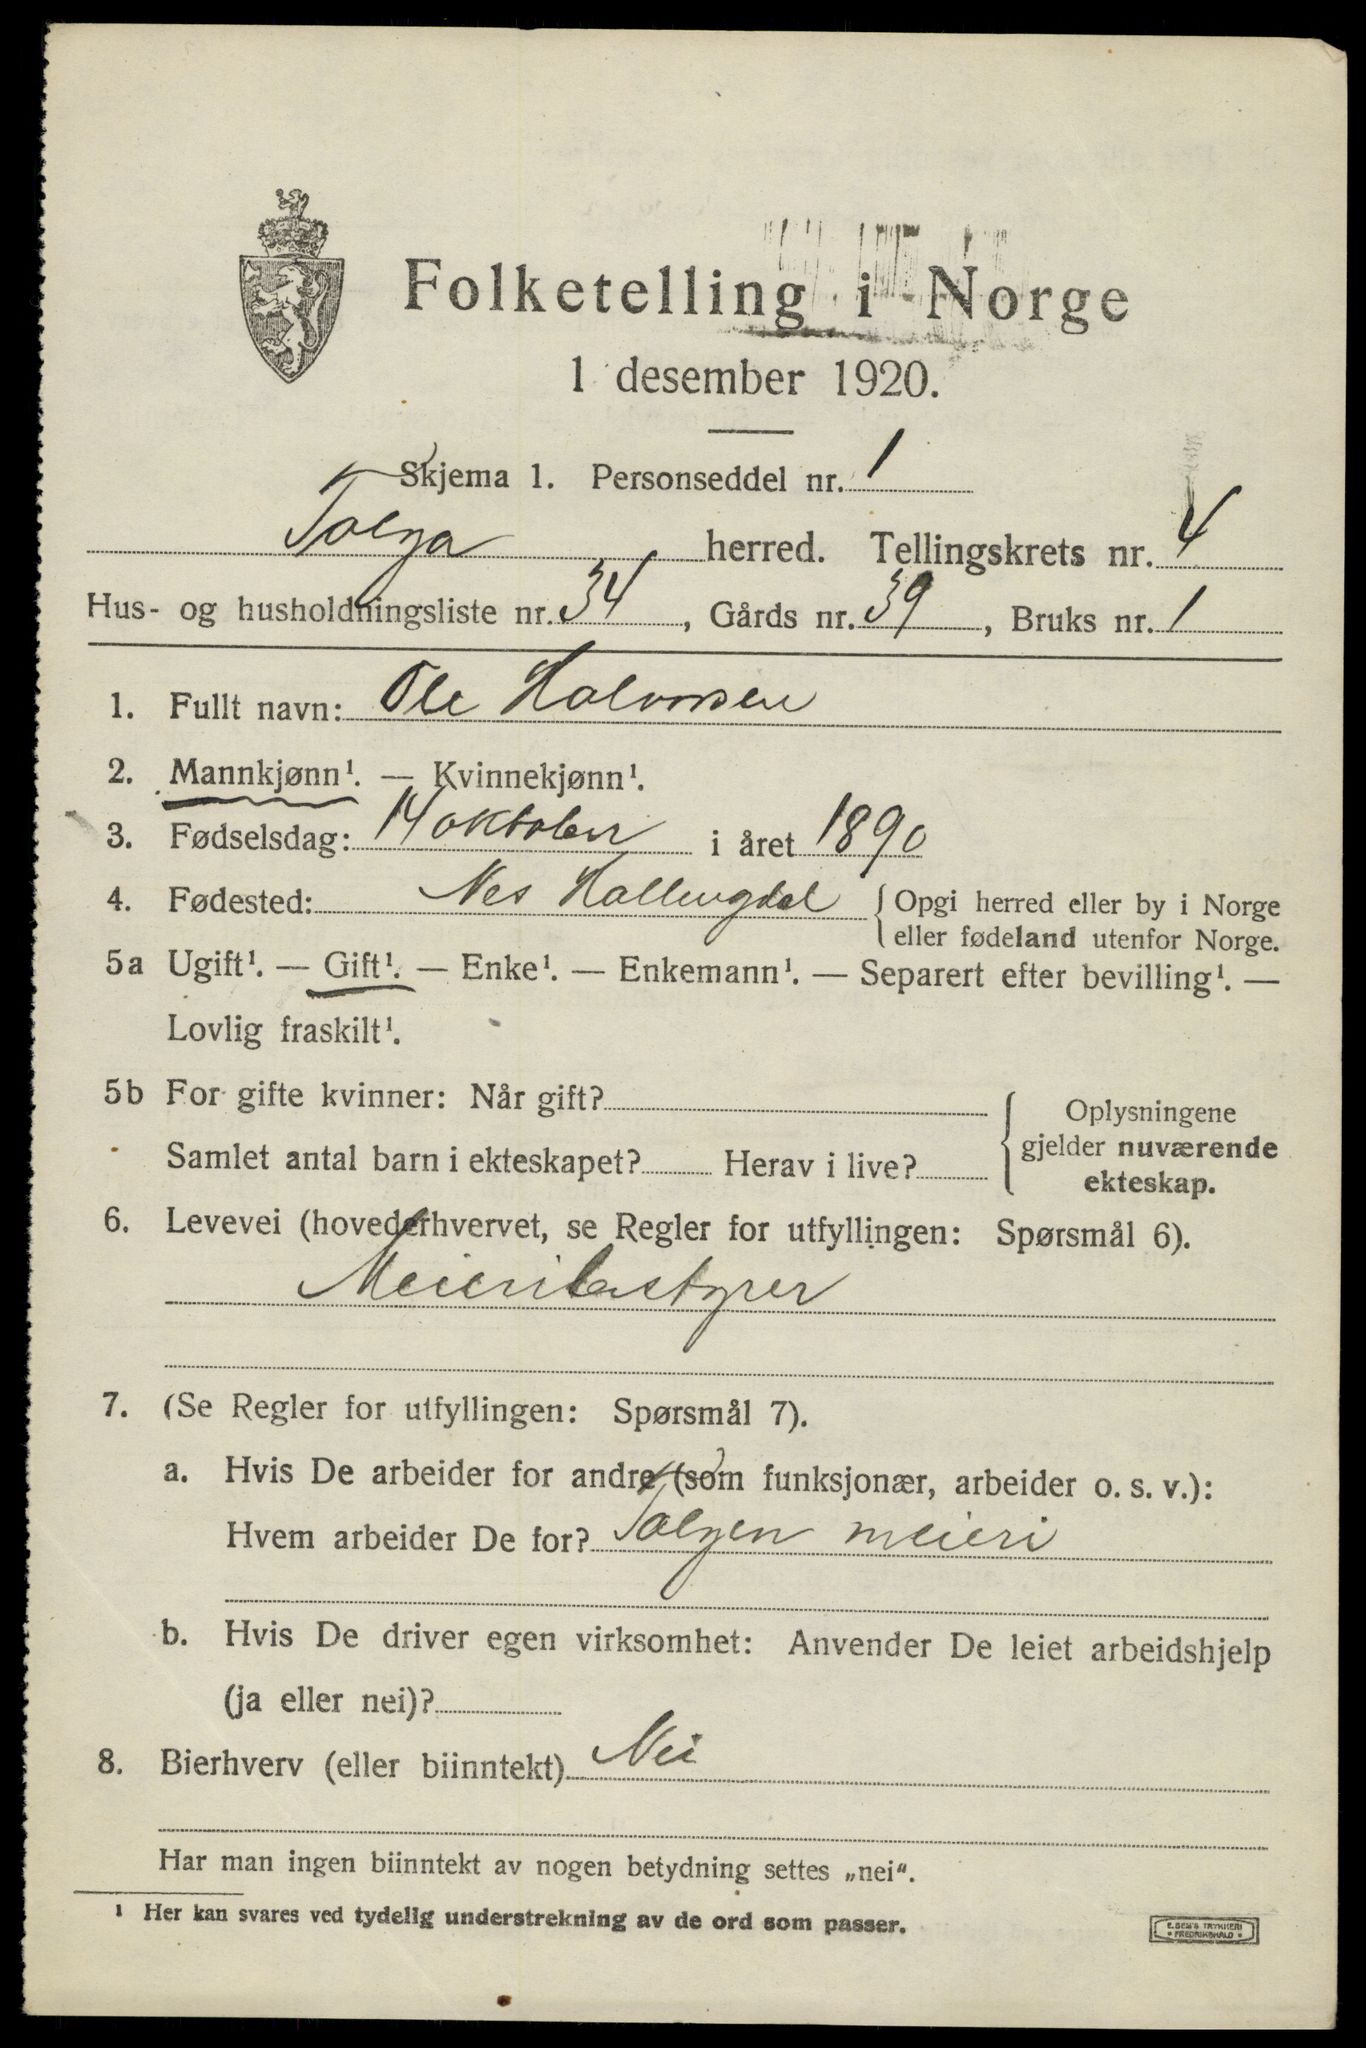 Folketelling i Norge
1 desember 1920.
Skjema 1. Personseddel nr. 1
Tolga herred. Tellingskrets nr. 4
Hus- og husholdningsliste nr. 34, Gårds nr. 39, Bruks nr. 1
1. Fullt navn: Ole Halvorsen
2. Mannkjønn¹. — Kvinnekjønn¹.
3. Fødselsdag: 14 oktober i året 1890
4. Fødested: Nes Hallingdal { Opgi herred eller by i Norge
eller fødeland utenfor Norge.
5a Ugift¹. — Gift¹. — Enke¹. — Enkemann¹. — Separert efter bevilling¹. —
Lovlig fraskilt¹.
5b For gifte kvinner: Når gift?
Samlet antal barn i ekteskapet? Herav i live?
{ Oplysningene
gjelder nuværende
ekteskap.
6. Levevei (hovederhvervet, se Regler for utfyllingen: Spørsmål 6).
Meieribestyrer
7. (Se Regler for utfyllingen: Spørsmål 7).
a. Hvis De arbeider for andre (som funksjonær, arbeider o. s. v.):
Hvem arbeider De for? Tolgen meieri
b. Hvis De driver egen virksomhet: Anvender De leiet arbeidshjelp
(ja eller nei)?
8. Bierhverv (eller biinntekt) Nei
Har man ingen biinntekt av nogen betydning settes „nei“.
¹ Her kan svares ved tydelig understrekning av de ord som passer.
E. SEM'S TRYKKERI
• FREDRIKSHALD •